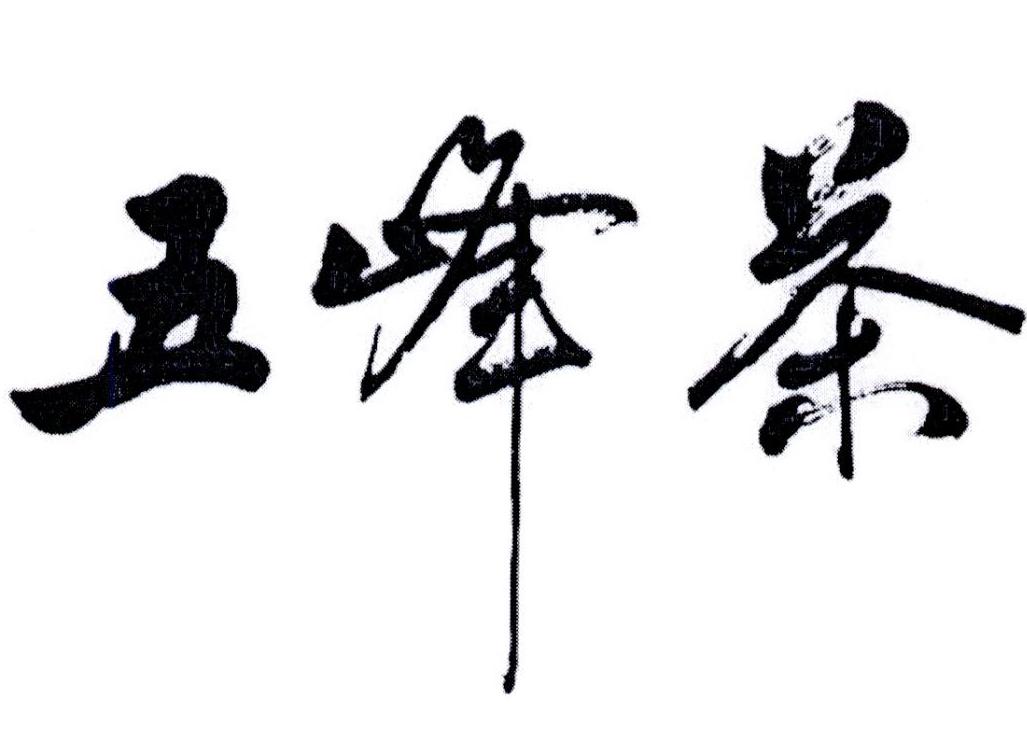 五峰茶